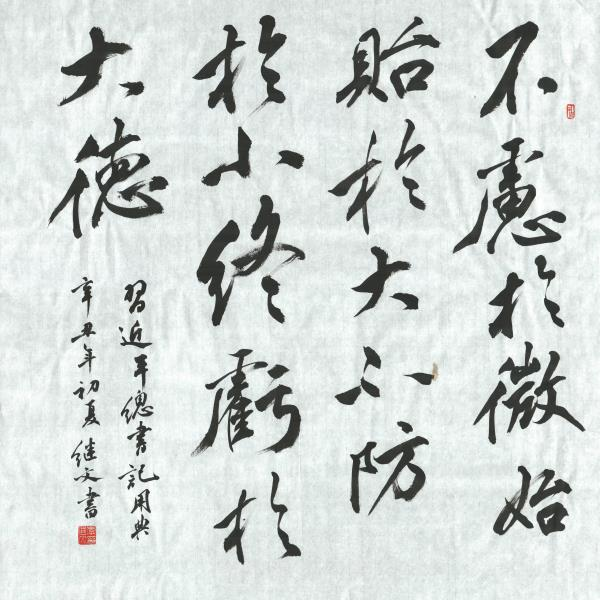 不慮於微始
貽於大不防
於小終虧於
大德
習近平總書記用典
辛丑年初夏继文書